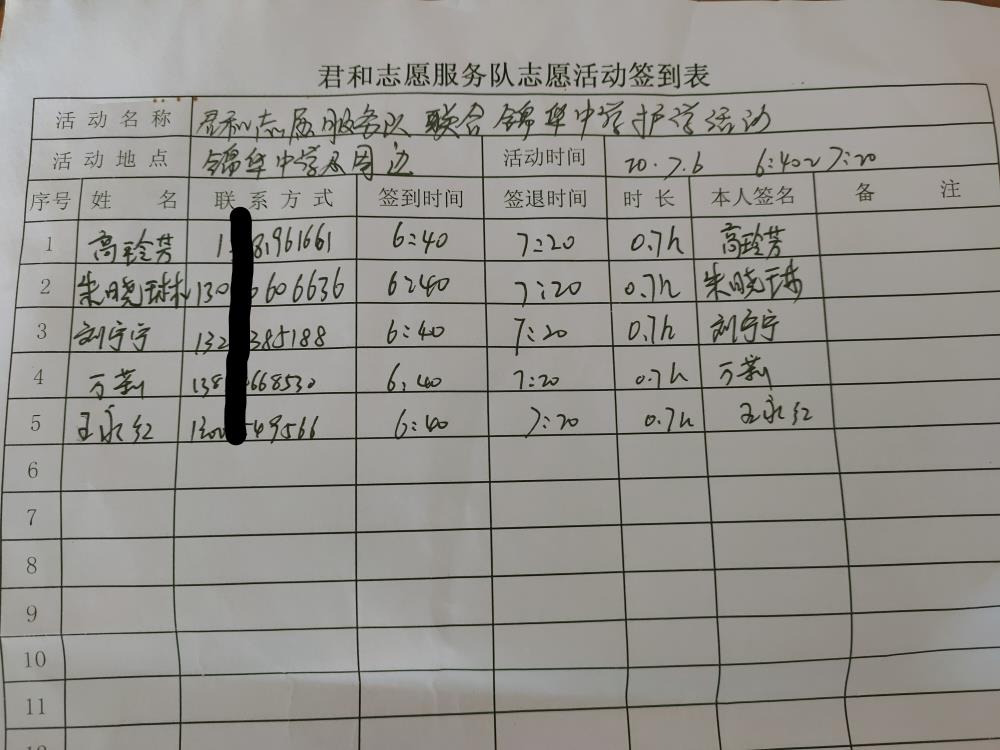 君和志愿服务队志愿活动签到表
活动名称 君和志愿服务队联合锦华中学护学活动
活动地点 锦华中学及周边 活动时间 20.7.6 6:40~7:20
序号 姓名 联系方式 签到时间 签退时间 时长 本人签名 备注
1 高玲芳 961661 6:40 7:20 0.7h 高玲芳
2 朱晓琳 130 606636 6:40 7:20 0.7h 朱晓琳
3 刘宁宁 132 385188 6:40 7:20 0.7h 刘宁宁
4 万莉 138 668530 6:40 7:20 0.7h 万莉
5 王永红 549566 6:40 7:20 0.7h 王永红
6
7
8
9
10
11